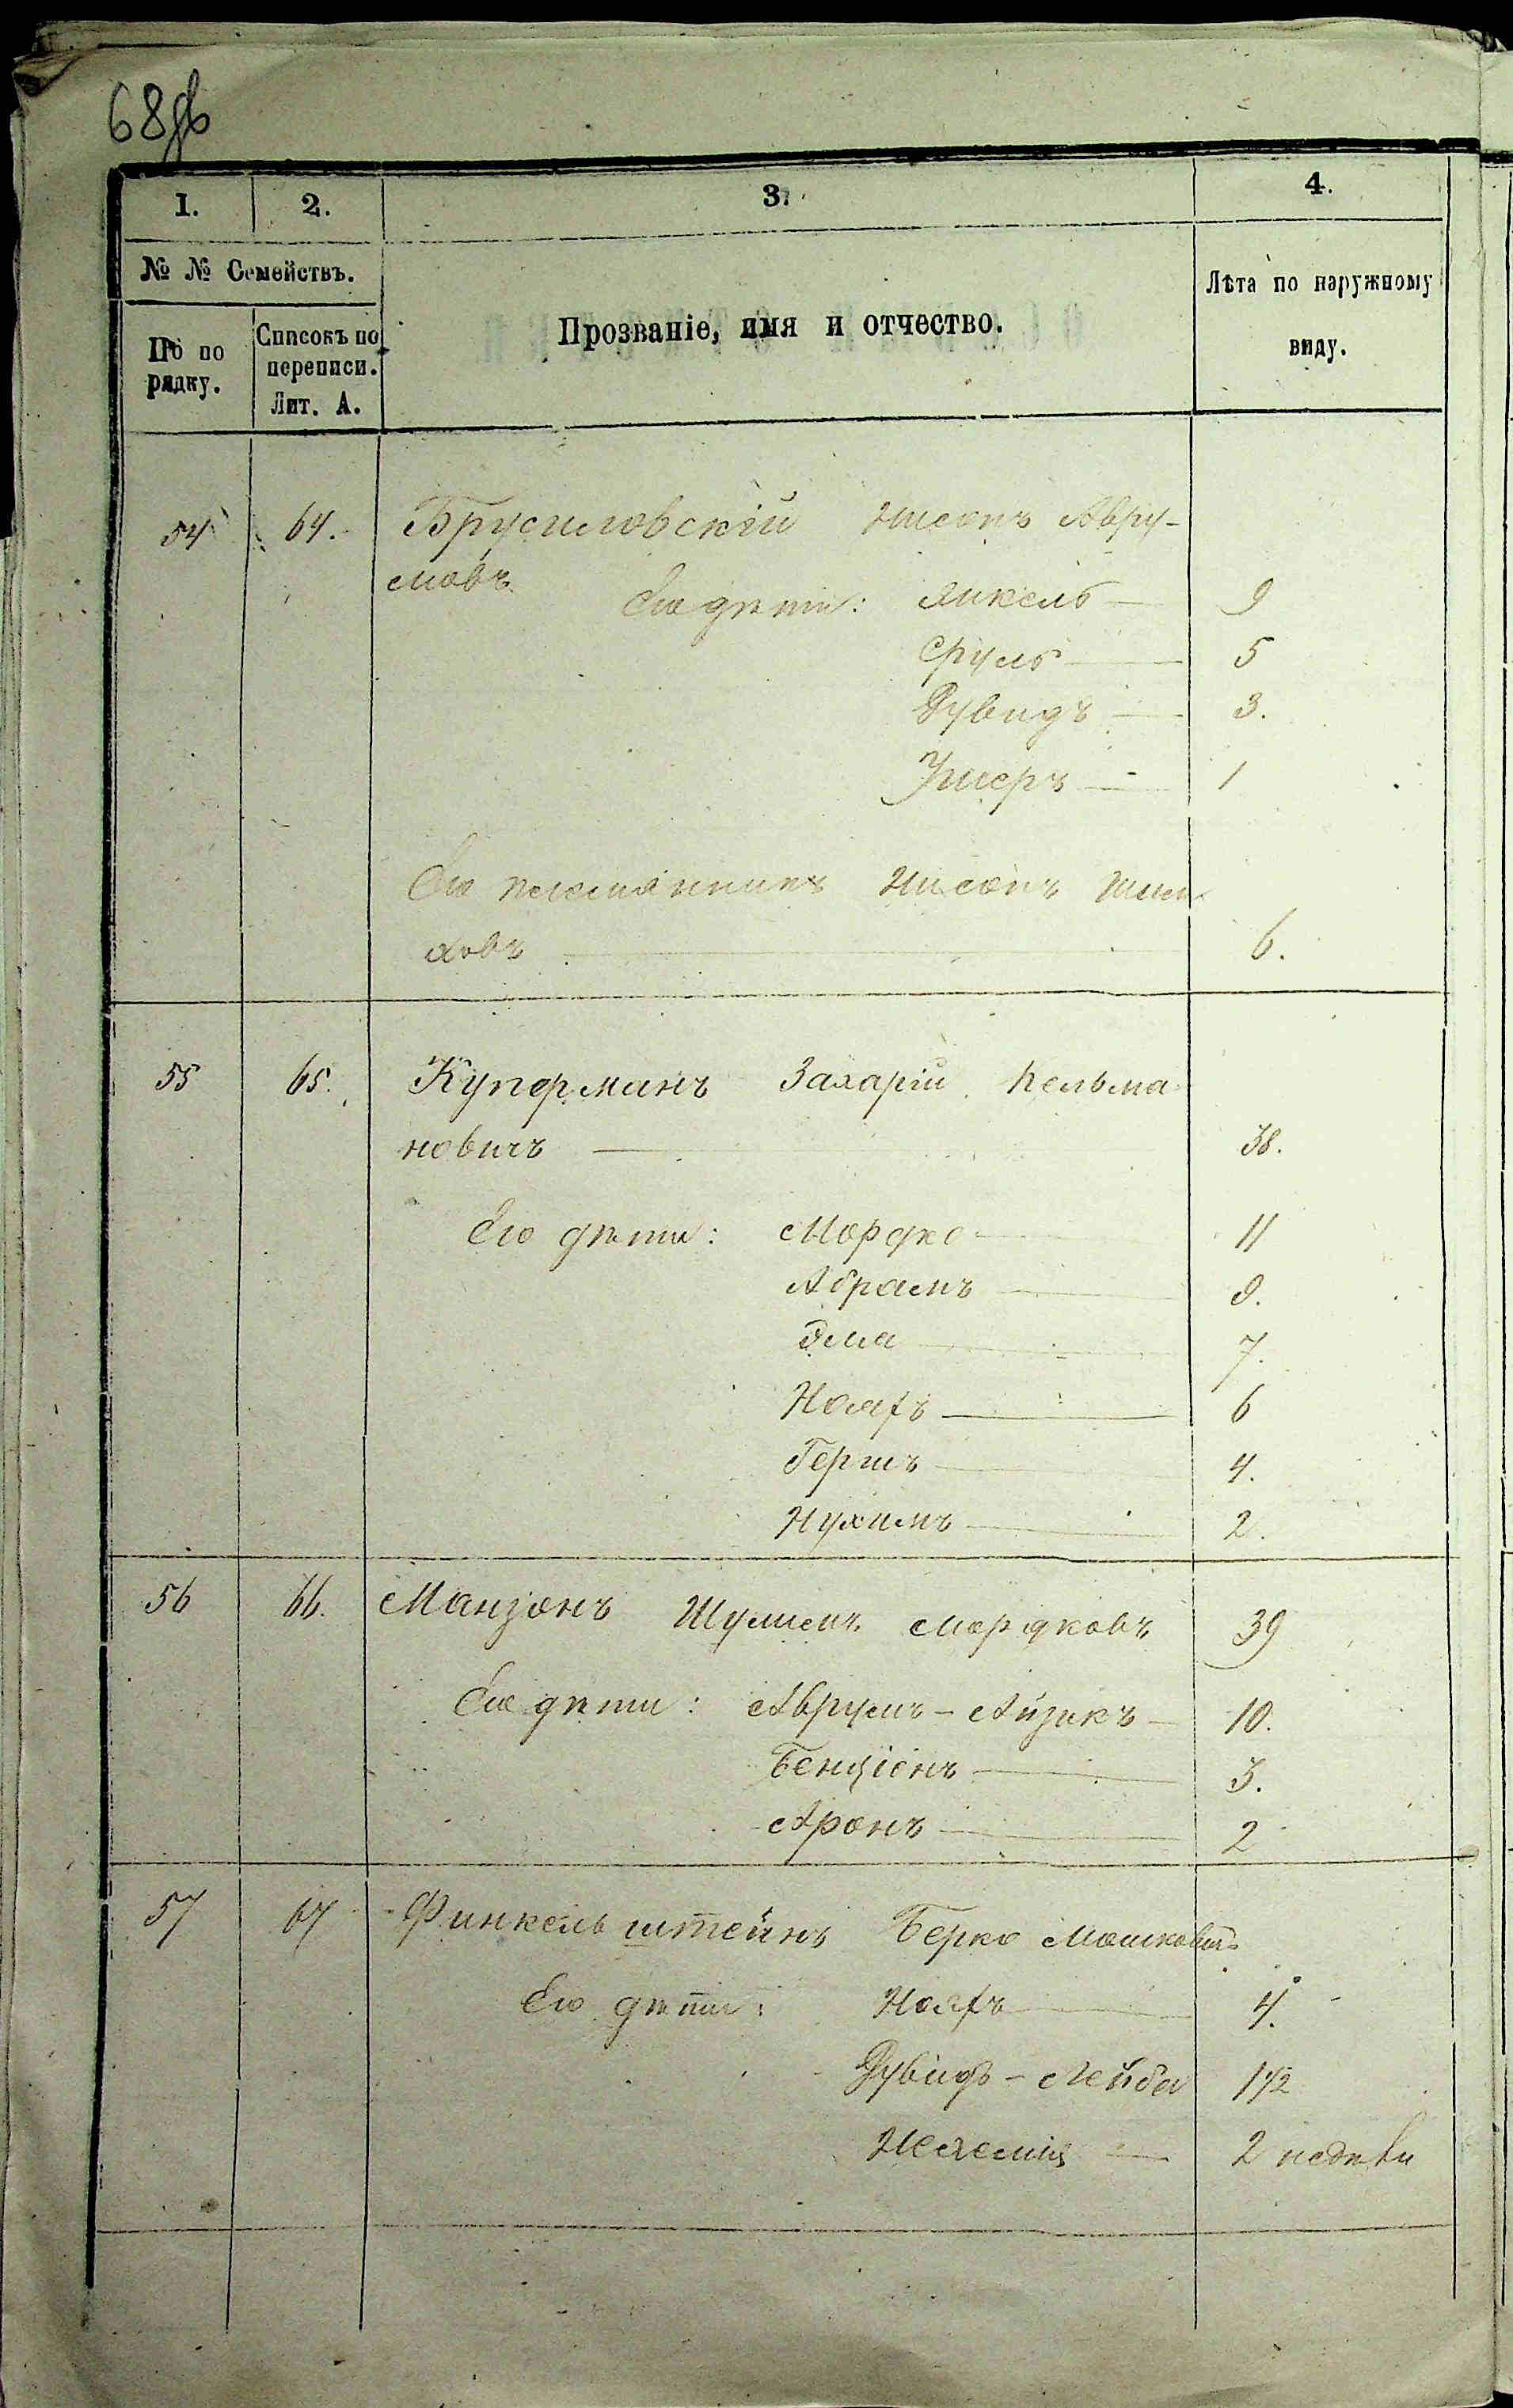 68об
1. 2. 3. 4.
№ № Семействъ.
По по рядку.
Списокъ по переписи. Лит. А.
Прозваніе, имя и отчество.
Лѣта по наружному виду.
54 64. Брусиловскій Нисонъ Авру-
мовъ
Его дѣти: Янкель — 9
Сруль — 5
Дувидъ — 3.
Ушеръ — 1
Его племянникъ Нисонъ
ховъ — 6.
55 65. Куперманъ Захарій Кельма
новичъ — 38.
Его дѣти: Мордко — 11
Абрамъ — 9.
Эля — 7.
Ноахъ — 6
Гершъ — 4.
Нухимъ — 2.
56 66. Манзонъ Шулимъ Мордковъ 39
Его дѣти: Аврумъ - Айзикъ — 10.
Бенціонъ — 3.
Аронъ — 2
57 67 Финкельштейнъ Берко Мошковъ
Его дѣти: Ноахъ — 4.
Дувидъ - Лейба 1 1/2
Нехемія — 2 недѣли